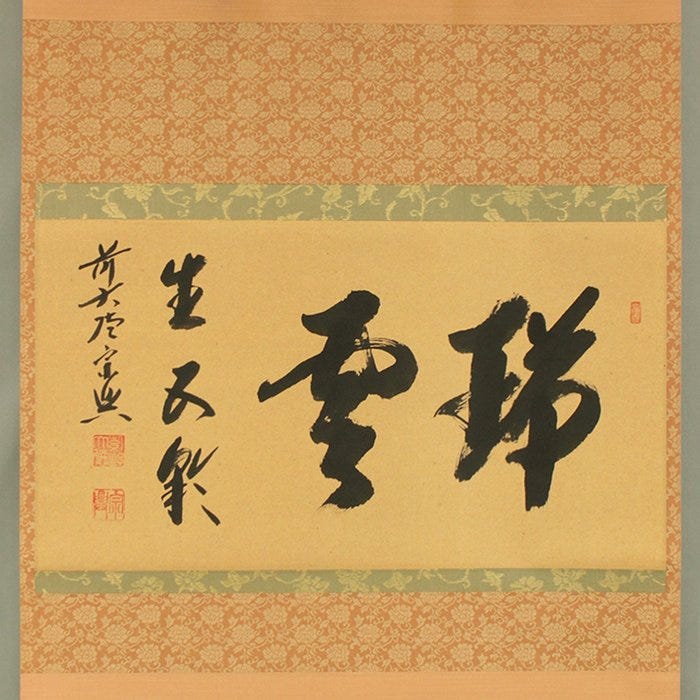 瑞雲
生五彩
前大徳宗興